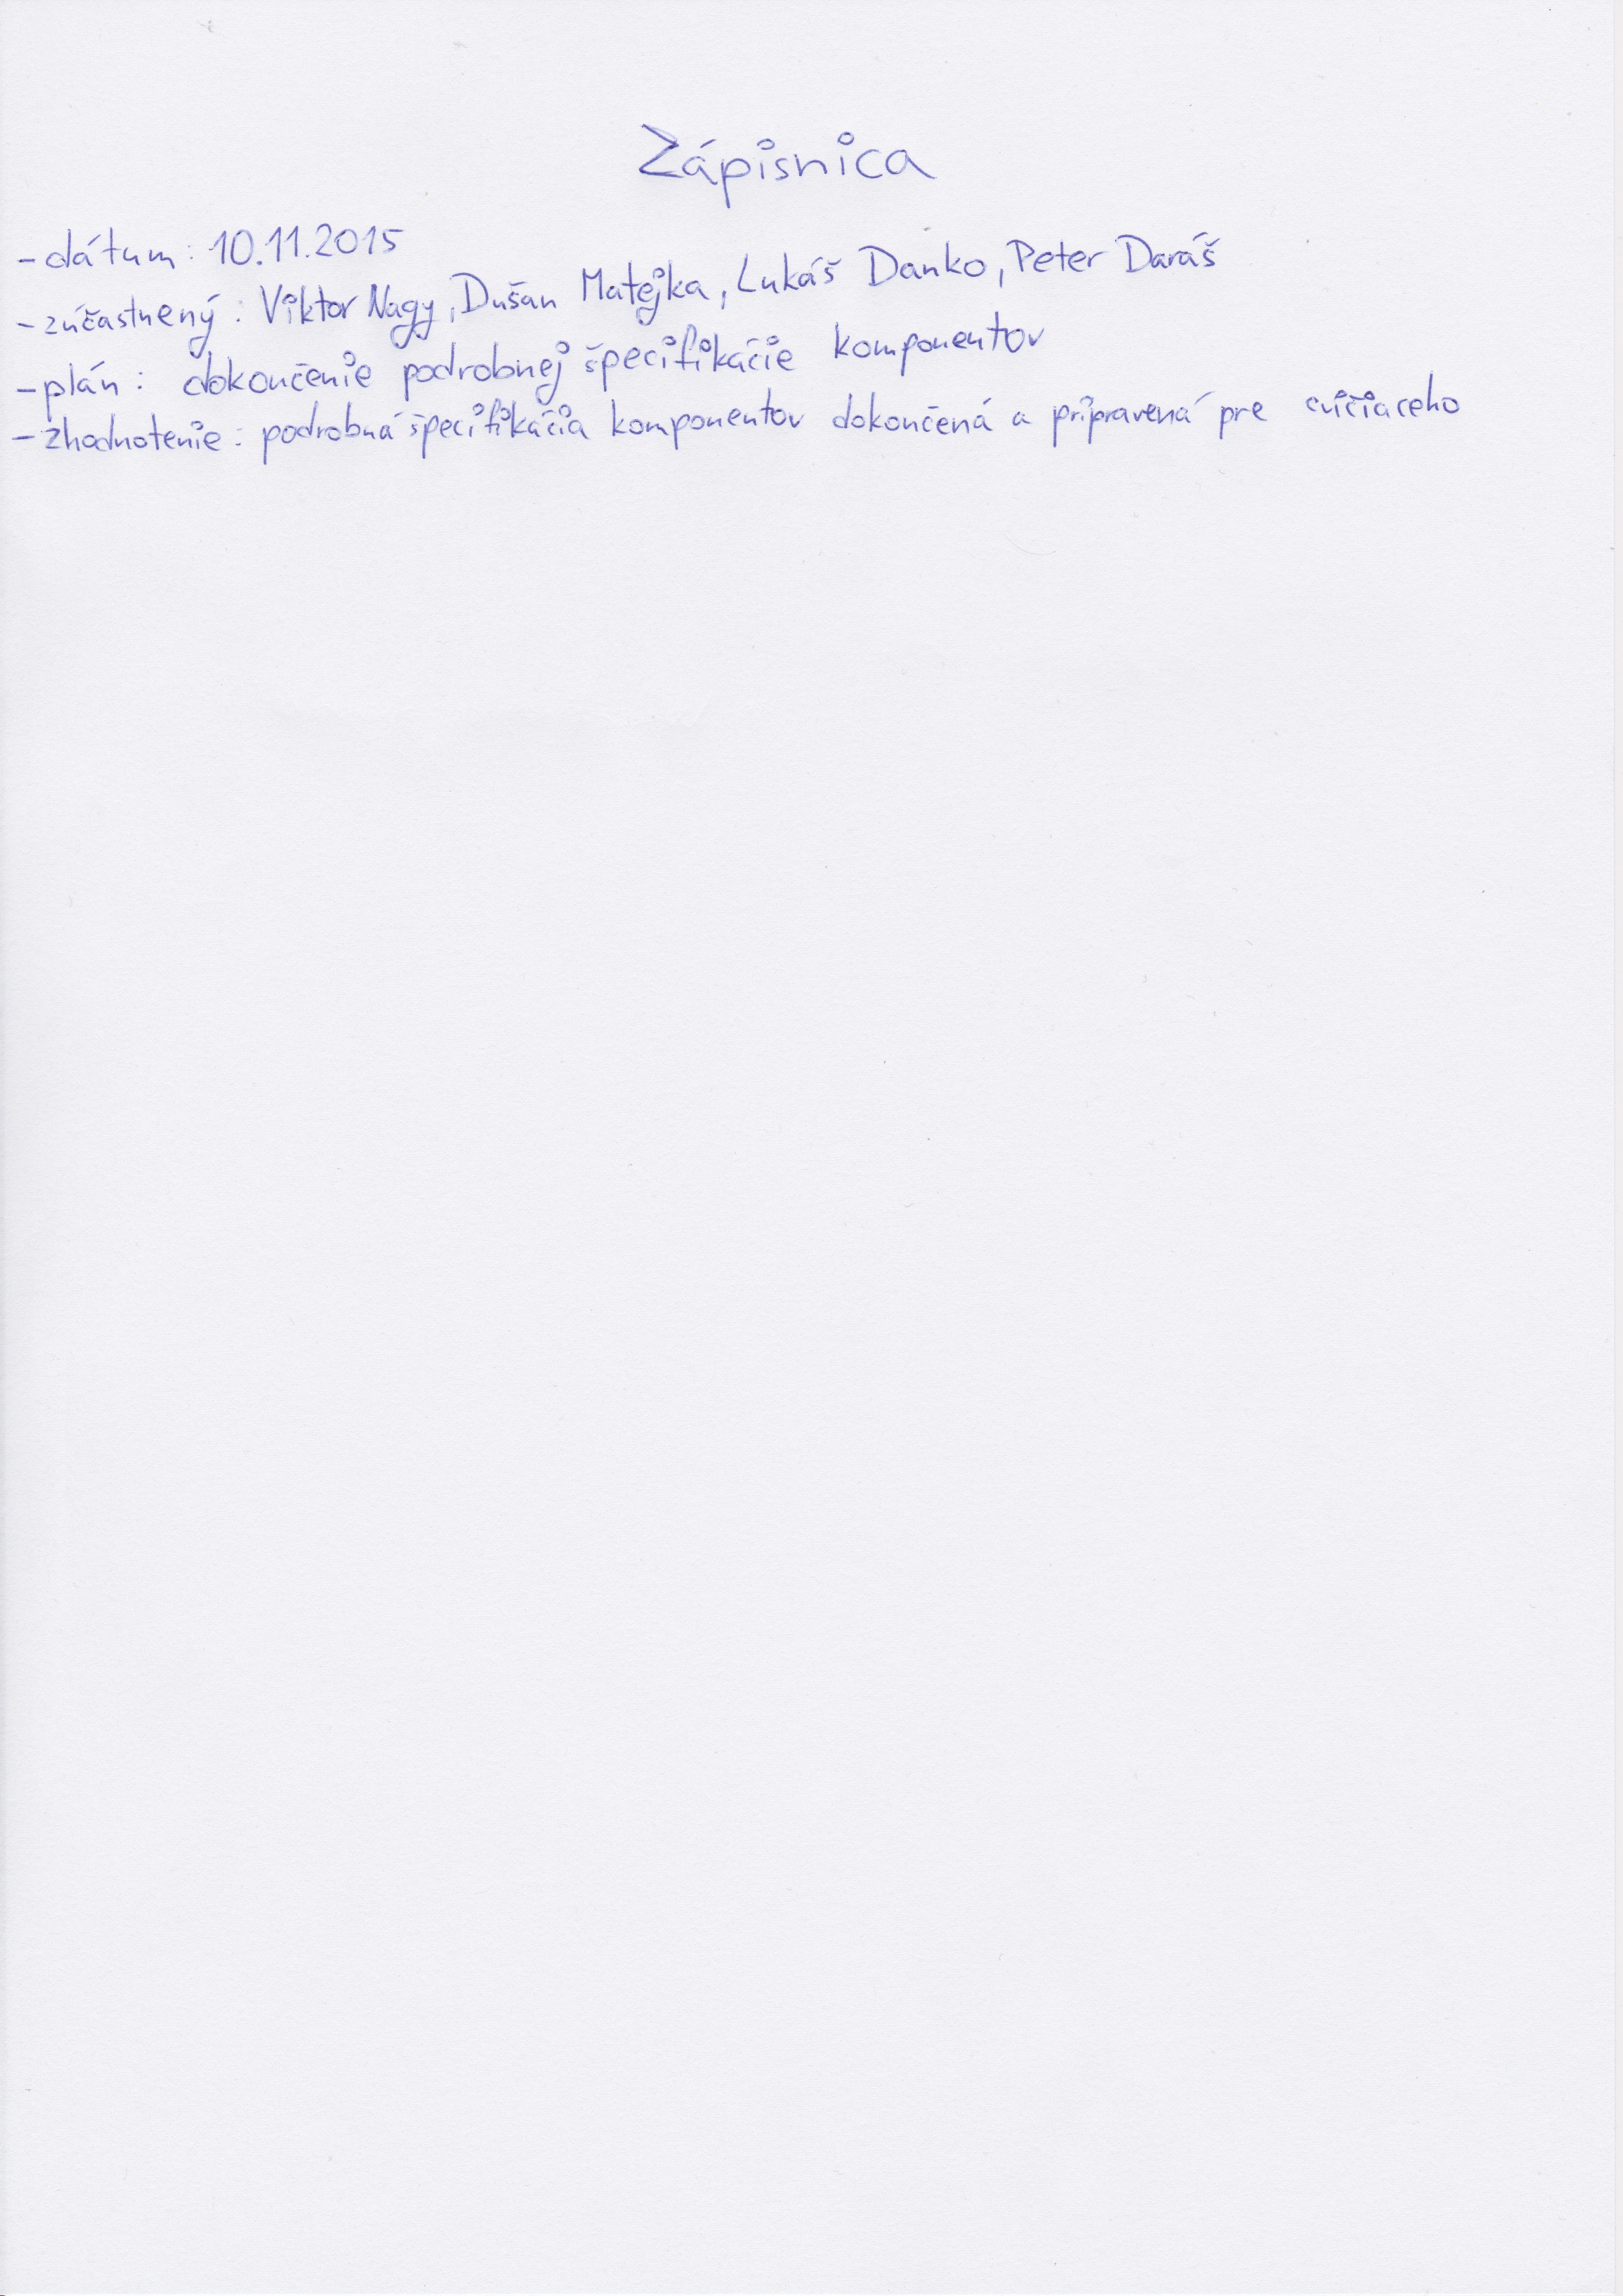 Zápisnica
- dátum: 10.11.2015
- zúčastnený: Viktor Nagy, Dušan Matejka, Lukáš Danko, Peter Daráš
- plán: dokončenie podrobnej špecifikácie komponentov
- zhodnotenie: podrobná špecifikácia komponentov dokončená a pripravená pre cvičiaceho